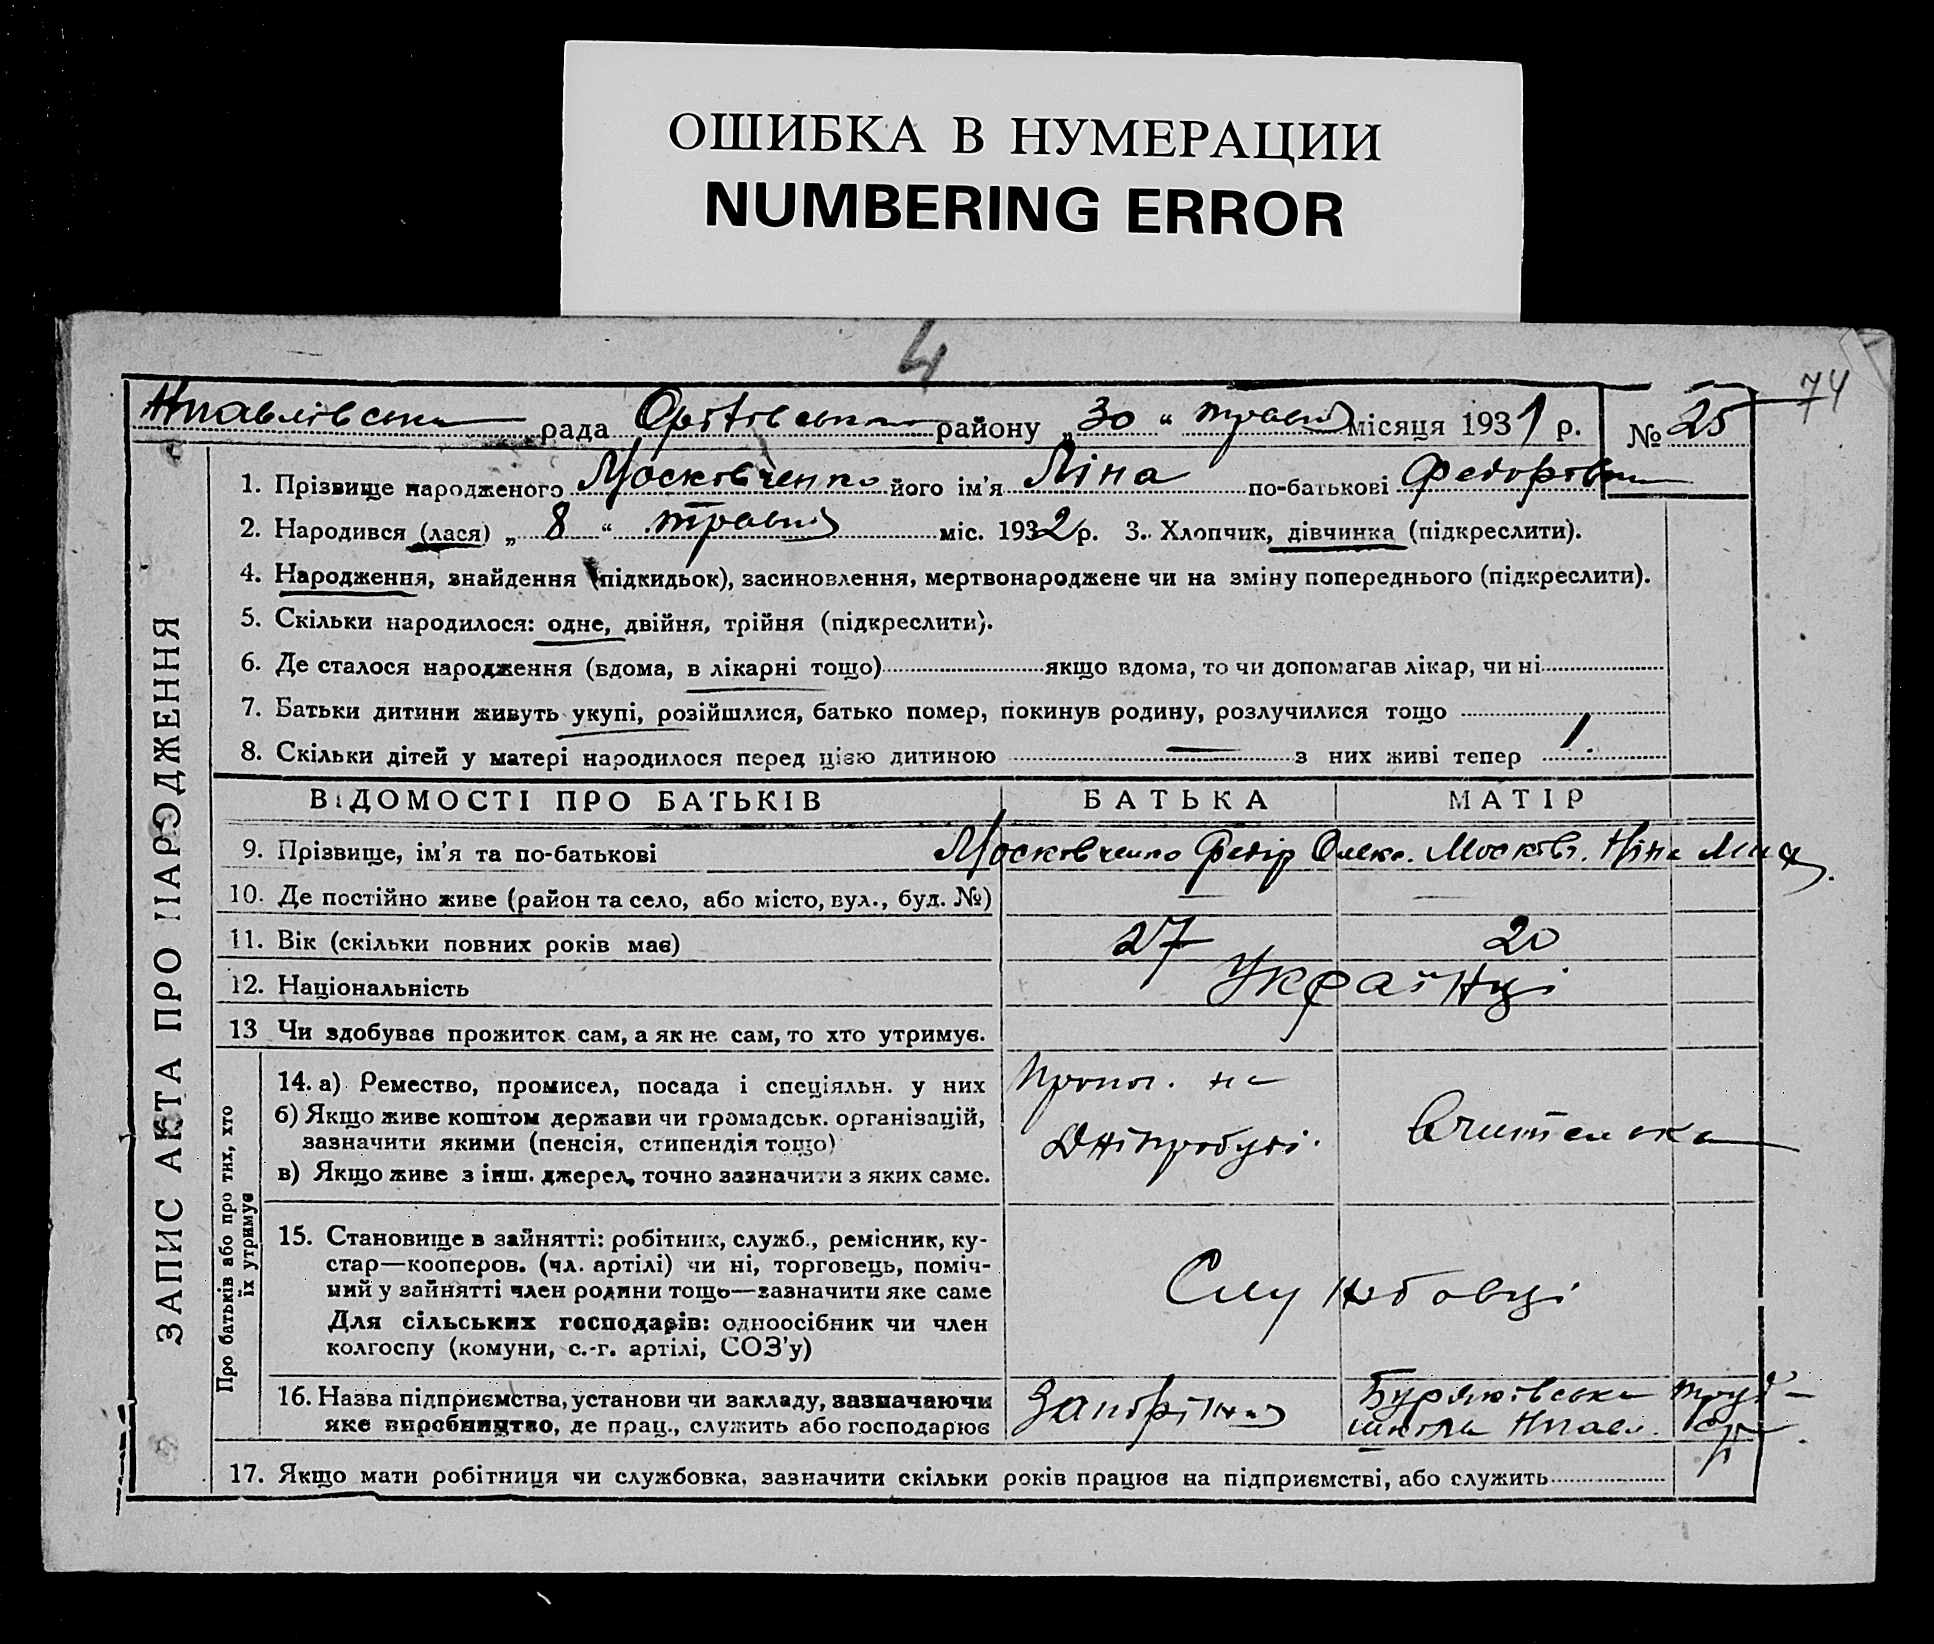 ОШИБКА В НУМЕРАЦИИ
NUMBERING ERROR
4
74
Нпавлівська рада Оріхівського району „30“ травня місяця 1931 р. № 25
ЗАПИС АКТА ПРО НАРОДЖЕННЯ
1. Прізвище народженого Московченко його ім’я Ліна по-батькові Федоровна
2. Народився (лася) „8“ травня міс. 1932 р. 3. Хлопчик, дівчинка (підкреслити).
4. Народження, знайдення (підкидьок), засиновлення, мертвонароджене чи на зміну попереднього (підкреслити).
5. Скільки народилося: одне, двійня, трійня (підкреслити).
6. Де сталося народження (вдома, в лікарні тощо) якщо вдома, то чи допомагав лікар, чи ні
7. Батьки дитини живуть укупі, розійшлися, батько помер, покинув родину, розлучилися тощо
8. Скільки дітей у матері народилося перед цією дитиною — з них живі тепер 1.
ВІДОМОСТІ ПРО БАТЬКІВ БАТЬКА МАТІР
9. Прізвище, ім’я та по-батькові Московченко Федір Олекс. Московч. Ніна Мих.
10. Де постійно живе (район та село, або місто, вул., буд. №) — —
11. Вік (скільки повних років має) 27 20
12. Національність Українці
13 Чи здобуває прожиток сам, а як не сам, то хто утримує.
Про батьків або про тих, хто їх утримує
14. а) Ремество, промисел, посада і спеціяльн. у них
б) Якщо живе коштом держави чи громадськ. організацій,
зазначити якими (пенсія, стипендія тощо)
в) Якщо живе з інш. джерел, точно зазначити з яких саме.
на
Дніпробуді.
Вчителька
15. Становище в зайнятті: робітник, служб., ремісник, ку-
стар—кооперов. (чл. артілі) чи ні, торговець, поміч-
ний у зайнятті член родини тощо—зазначити яке саме
Для сільських господарів: одноосібник чи член
колгоспу (комуни, с.-г. артілі, СОЗ’у)
Службовці
16. Назва підприємства, установи чи закладу, зазначаючи
яке виробництво, де прац., служить або господарює
Запоріжжя
Буряківська труд-
школа Нпавл.
17. Якщо мати робітниця чи службовка, зазначити скільки років працює на підприємстві, або служить